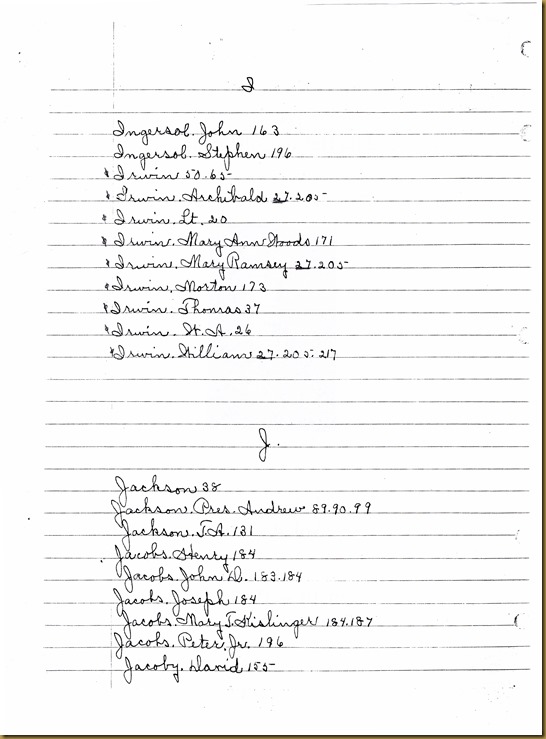 I
Ingersol. John 163
Ingersol. Stephen 196
* Irwin 50.65
* Irwin. Archibald 27.205
* Irwin. Lt. 20
* Irwin. Mary Ann Woods 171
* Irwin. Mary Ramsey 27.205
* Irwin. Morton 173
* Irwin. Thomas 37
* Irwin. W. A. 26
* Irwin. William 27.205.217
J.
Jackson 38
Jackson. Pres. Andrew 89.90.99
Jackson. T. A. 131
Jacobs. Henry 184
Jacobs. John D. 183.184
Jacobs. Joseph 184
Jacobs Mary T. Kislinger 184.187
Jacobs. Peter. Jr. 196
Jacoby. David 155